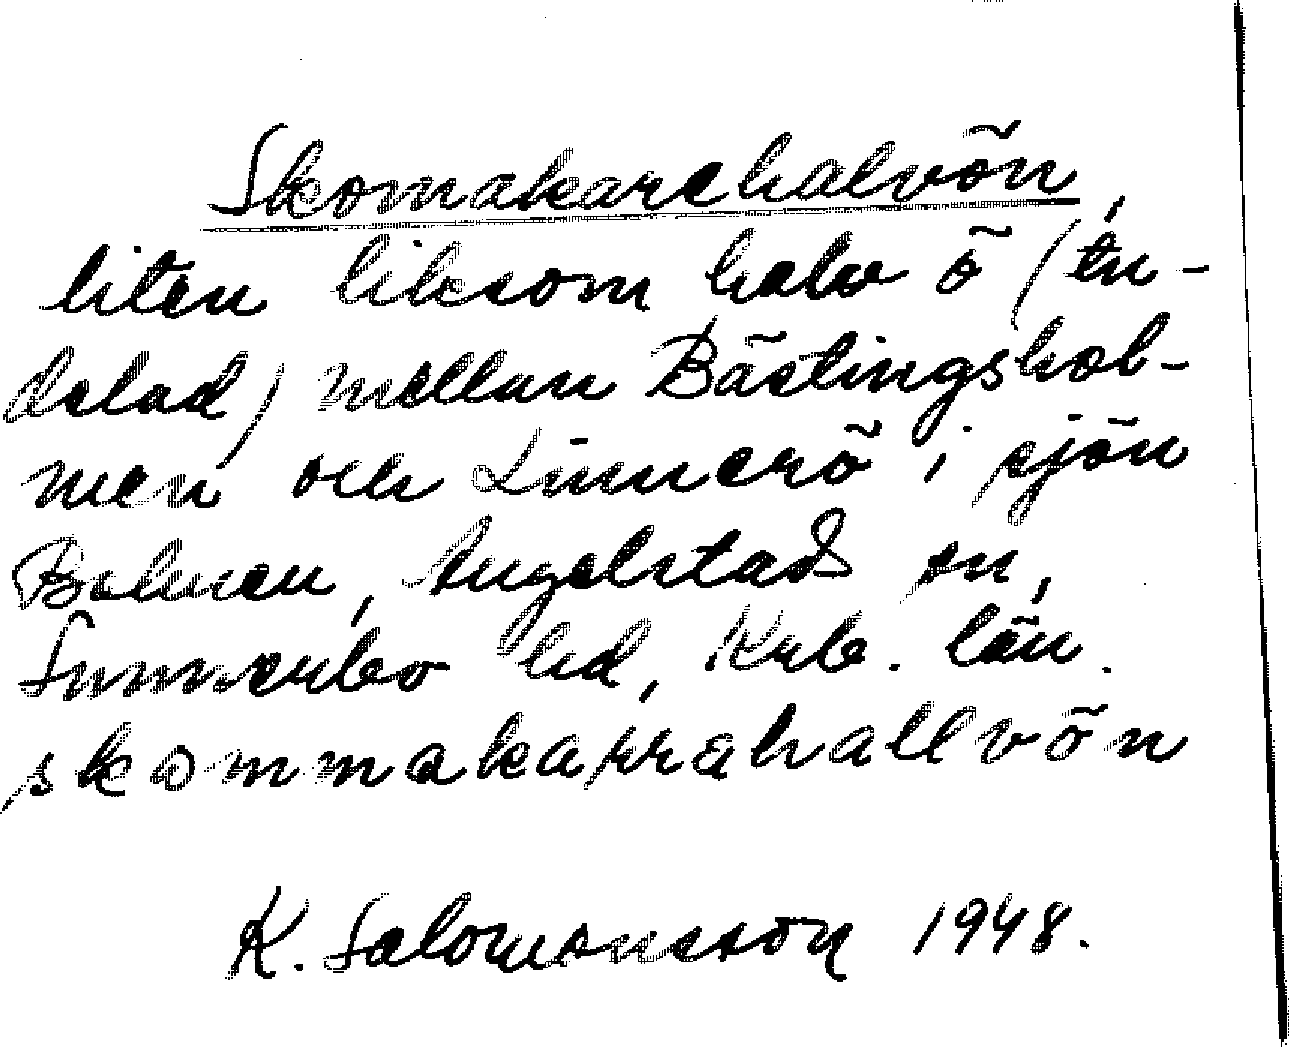 Skomakarehalvön,
liten liksom halv ö (tu-
delad) mellan Bästingshol-
men och Linnerö i sjön
Bolmen, Angelstad sn,
Sunnerbo hd, Krb. län.
skommakarrahallvön
K. Salomonsson 1948.